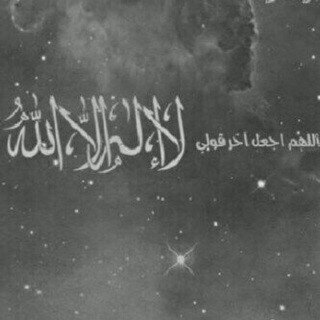 اللهم اجعل آخر قولي لا إله إلا الله